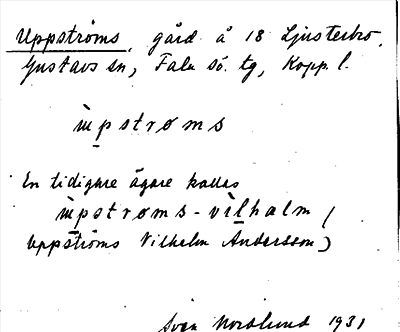 Uppströms, gård å 18 Ljusterbo,
Gustavs sn, Falu sö. tg, Kopp. l.
ùpstrøms
En tidigare ägare kallas
ùpstrøms-vìlhalm (
Uppströms Vilhelm Andersson)
Sven Nordlund 1931